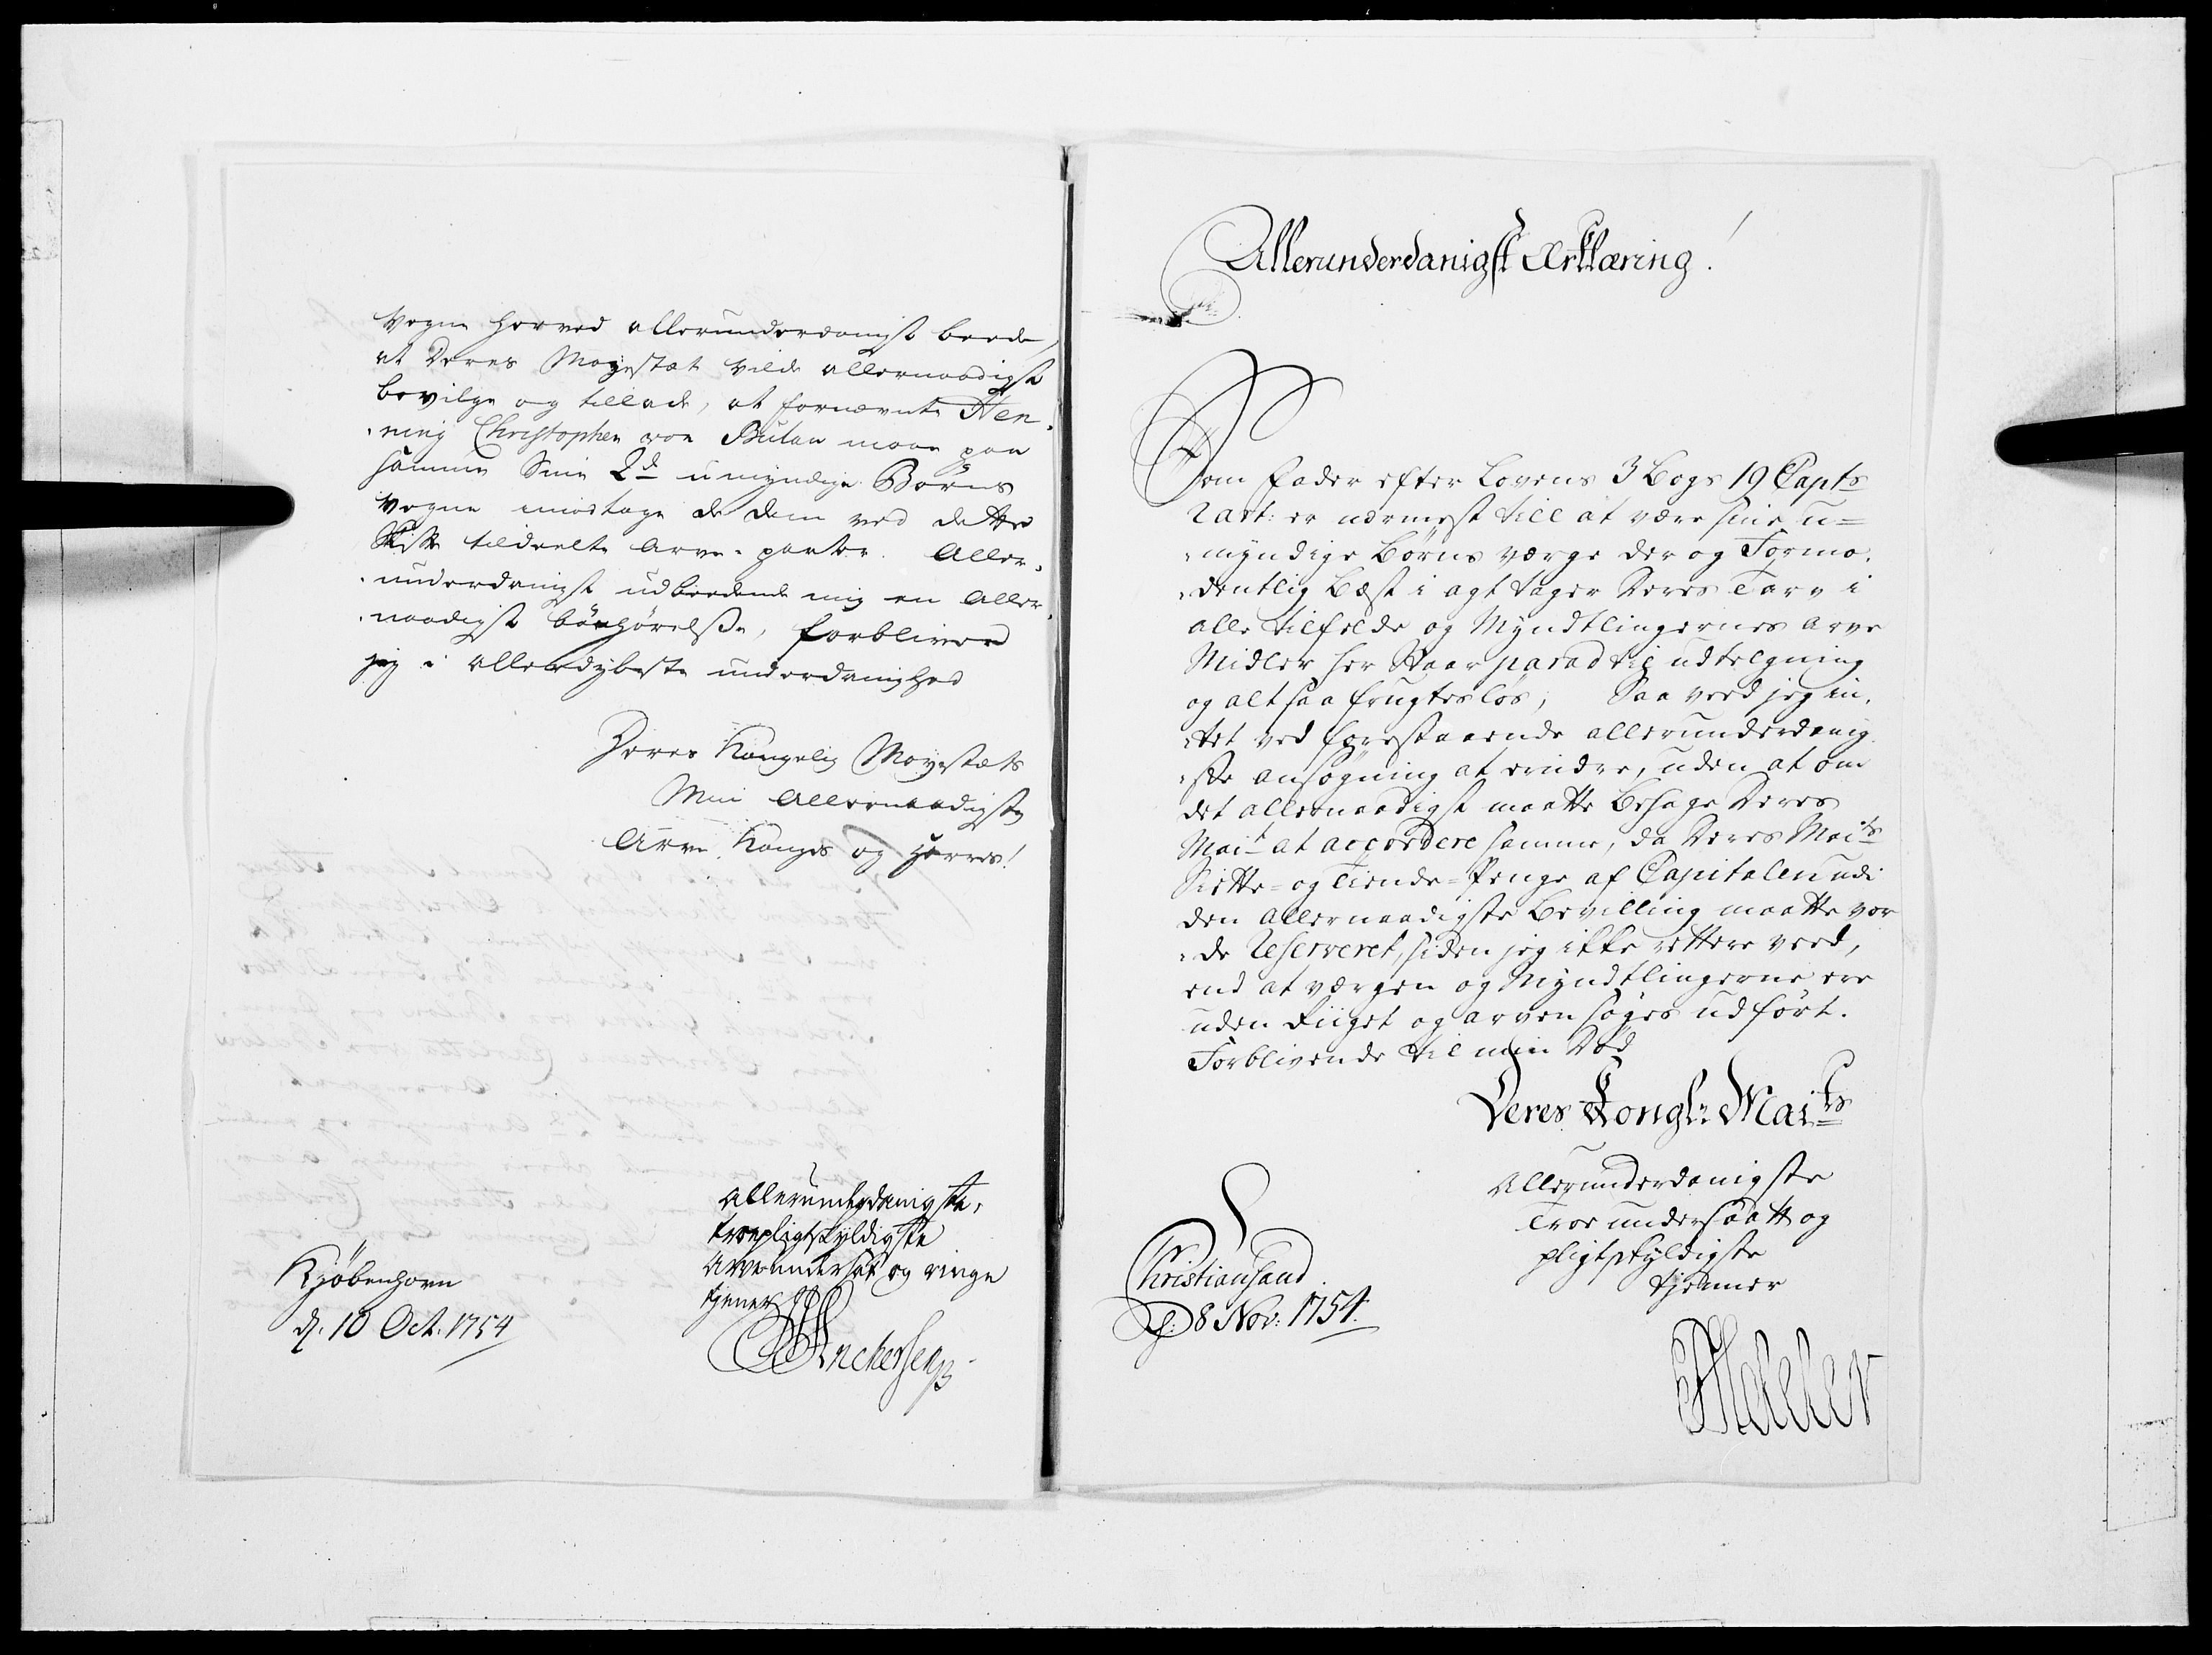 Vegne herved allerunderdanigst beede,
at Deres Mayestæt vilde allernaadigst
bevilge og tillade, at fornævnte Hen-
-ning Christopher von Bulau maae paa
samme Sine 2de umyndige Børns
Vegne imodtage de dem ved dette
Skifte tildeelte Arve-parter. Aller-
-underdanigst udbeedende mig en Aller-
-naadigst bönhörelsse, forbliver
jeg i allerdybeste underdanighed
Deres Kongelig Mayestæts
Min Allernaadigste
Arve Konges og Herres!
Allerunderdanigste,
troepligtskyldigste
Arveundersat og ringe
tjener
Anckersen
Kjøbenhavn
d. 10 Oct. 1754
Allerunderdanigst Erklæring!
Som Fader efter Lovens 3 Bogs 19 Capts
2 art: er nærmest till at være sine u=
-myndige Børns værge der og Formo-
-dentlig Best i agt tager Deres Tarv i
alle tilfelde og Myndtlingernes arve
Midler her staar parad til udtelgning
og altsaa frugtesløs, Saa veed jeg in-
-tet ved forestaaende allerunderdanig-
-ste ansøgning at erindre, uden at om
det allernaadigst maatte behage Deres
Mait at accordere samme, da Deres Maits
Siette- og Tiende-Penge af Capitalen udi
den allernaadigste Bevilling maatte vor-
-de Reserveret, siden jeg ikke rettere veed,
end at værgen og Myndtlingerne ere
uden Riiget og arven søges udført.
Forblivende til min Død
Deres Kongl: Maits
Allerunderdanigste
Troe undersaatt og
pligtskyldigste
tjenner
Christiansand
d: 8 Nov: 1754.
Adeler